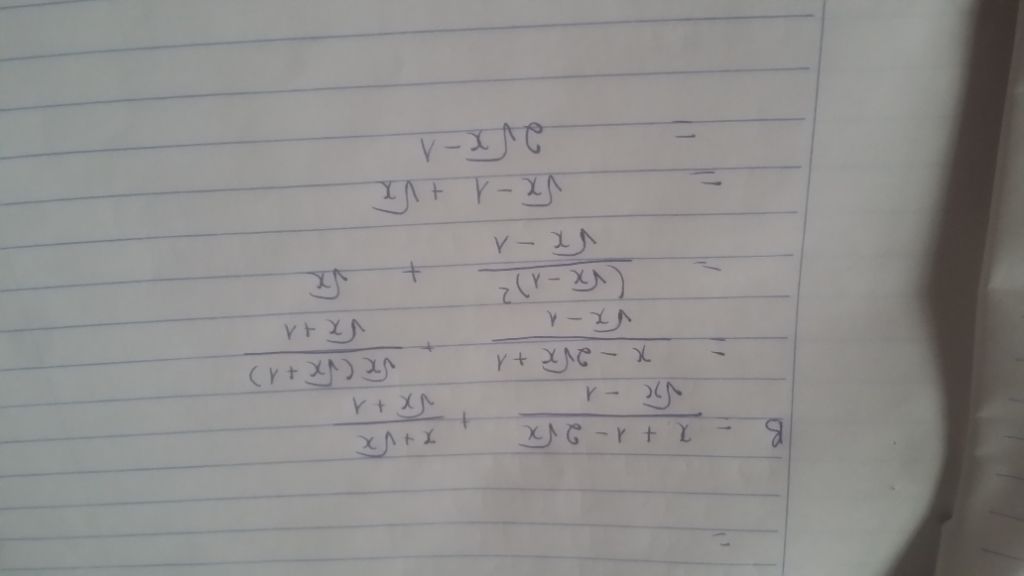 =
B = \frac{x + 1 - 2\sqrt{x}}{\sqrt{x} - 1} + \frac{x + \sqrt{x}}{\sqrt{x} + 1}
= \frac{x - 2\sqrt{x} + 1}{\sqrt{x} - 1} + \frac{\sqrt{x}(\sqrt{x} + 1)}{\sqrt{x} + 1}
= \frac{(\sqrt{x} - 1)^2}{\sqrt{x} - 1} + \sqrt{x}
= \sqrt{x} - 1 + \sqrt{x}
= 2\sqrt{x} - 1